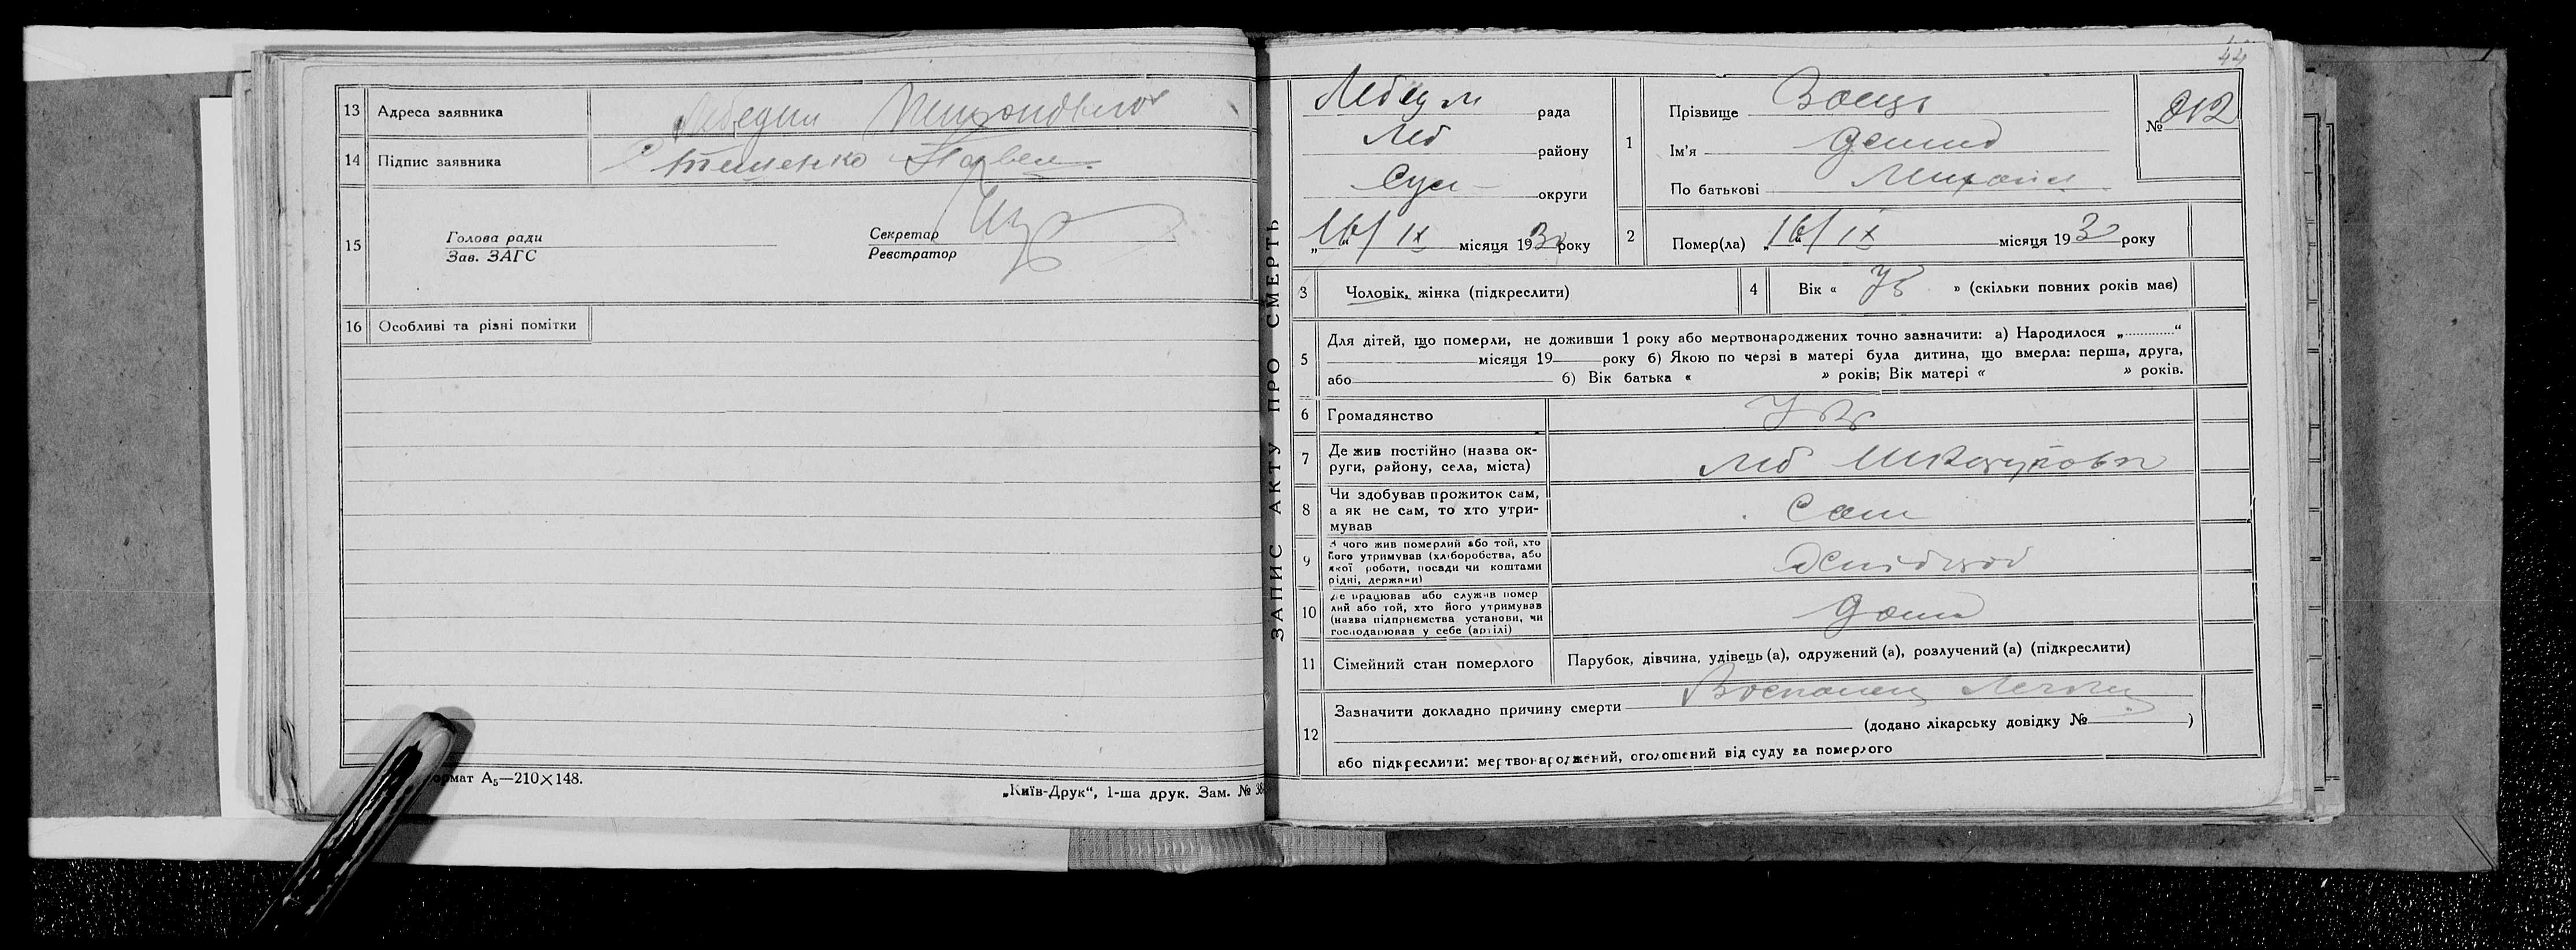 13 Адреса заявника Лебедин
14 Підпис заявника Стешенко Павел
15 Голова ради
Зав. ЗАГС
Секретар
Реєстратор
16 Особливі та різні помітки
формат А5—210×148.
„Київ-Друк“, 1-ша друк. Зам. № 38
ЗАПИС АКТУ ПРО СМЕРТЬ
44
рада
Леб району
Сум округи
„16“ IX місяця 1930 року
1 Прізвище Заєць
Ім'я Демид
По батькові Михайл
№ 212
2 Помер(ла) „16“ IX місяця 1930 року
3 Чоловік, жінка (підкреслити)
4 Вік « » (скільки повних років має)
5 Для дітей, що померли, не доживши 1 року або мертвонароджених точно зазначити: а) Народилося „ “
місяця 19 року б) Якою по черзі в матері була дитина, що вмерла: перша, друга,
або б) Вік батька « » років; Вік матері « » років.
6 Громадянство
7 Де жив постійно (назва ок-
руги, району, села, міста) Леб
8 Чи здобував прожиток сам,
а як не сам, то хто утри-
мував Сам
9 З чого жив померлий або той, хто
його утримував (хліборобства, або
якої роботи, посади чи коштами
рідні, держави)
10 Де працював або служив помер
лий або той, хто його утримував
(назва підприємства установи, чи
господарював у себе (артілі) дома
11 Сімейний стан померлого Парубок, дівчина, удівець (а), одружений (а), розлучений (а) (підкреслити)
12 Зазначити докладно причину смерти
(додано лікарську довідку № )
або підкреслити: мертвонароджений, оголошений від суду за померлого